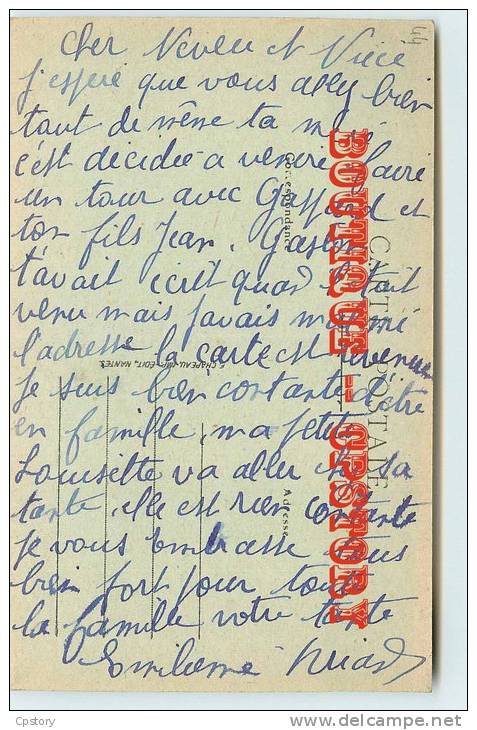 Cher Neveu et Niece
j'espere que vous allez bien
tant de même ta
c'est décidée a venir faire
un tour avec Gaspard et
ton fils Jean. Gaston
t'avait ecrit quand c'etait
venu mais javais mis
l'adresse la carte est revenue
je suis bien contante d'être
en famille, ma petite
Louisette va aller chez sa
tante elle est rien contante
je vous embrasse tous
bien fort pour toute
la famille votre tante
BOUTIQUE - CPSTORY
CARTE POSTALE
Correspondance
Adresse
CHAPEAU, IMP.-EDIT., NANTES
44
Cpstory
http://www.delcampe.net